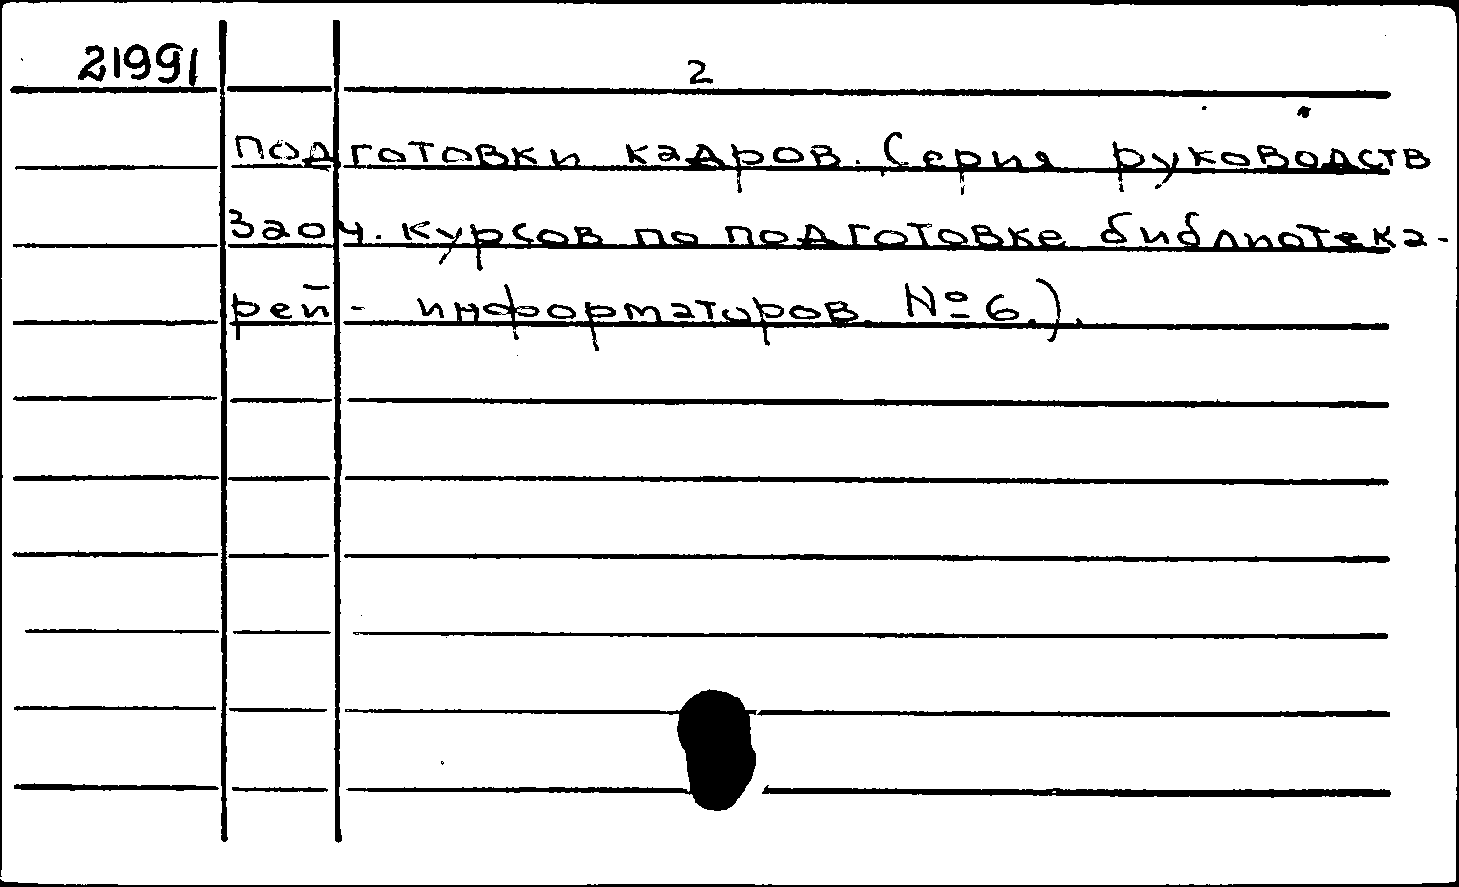 21991
2
подготовки кадров. (Серия руководств
заоч. курсов по подготовке библиотека-
рей - информаторов. № 6.).